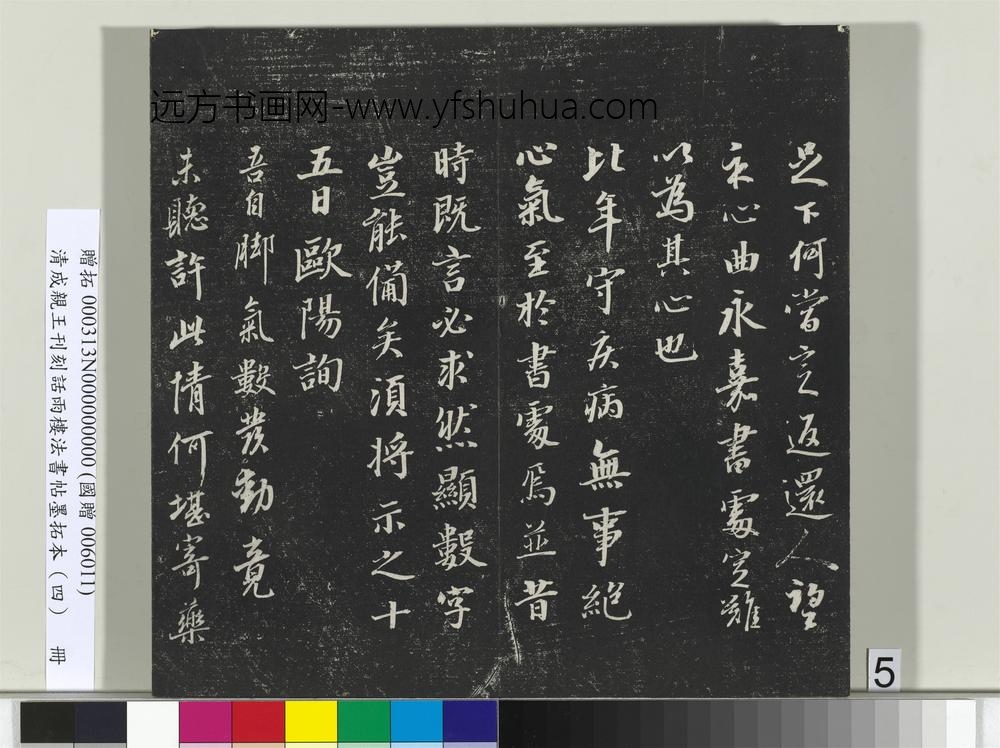 足下何當定返還人望
示心曲永嘉書處定難
以為其心也
比年守疾病無事絕
心氣至於書處焉並昔
時既言必求然顯數字
豈能備矣須將示之十
五日歐陽詢
吾自腳氣數發動竟
未聽許此情何堪寄藥
远方书画网-www.yfshuhua.com
贈拓 000313N000000000 (國贈 006011)
清成親王刊刻詒晉樓法書帖墨拓本（四） 冊
5